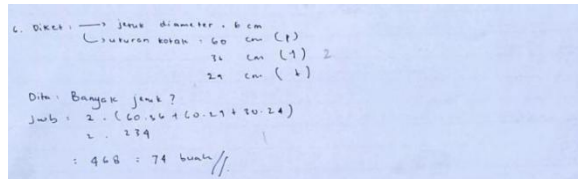 6. Diket : → jeruk diameter . 6 cm
↳ ukuran kotak . 60 cm (p)
36 cm (l) 2
24 cm (t)
Dita : Banyak jeruk ?
Jwb : 2 . (60.36 + 60.24 + 30.24)
2 . 234
: 468 = 74 buah //